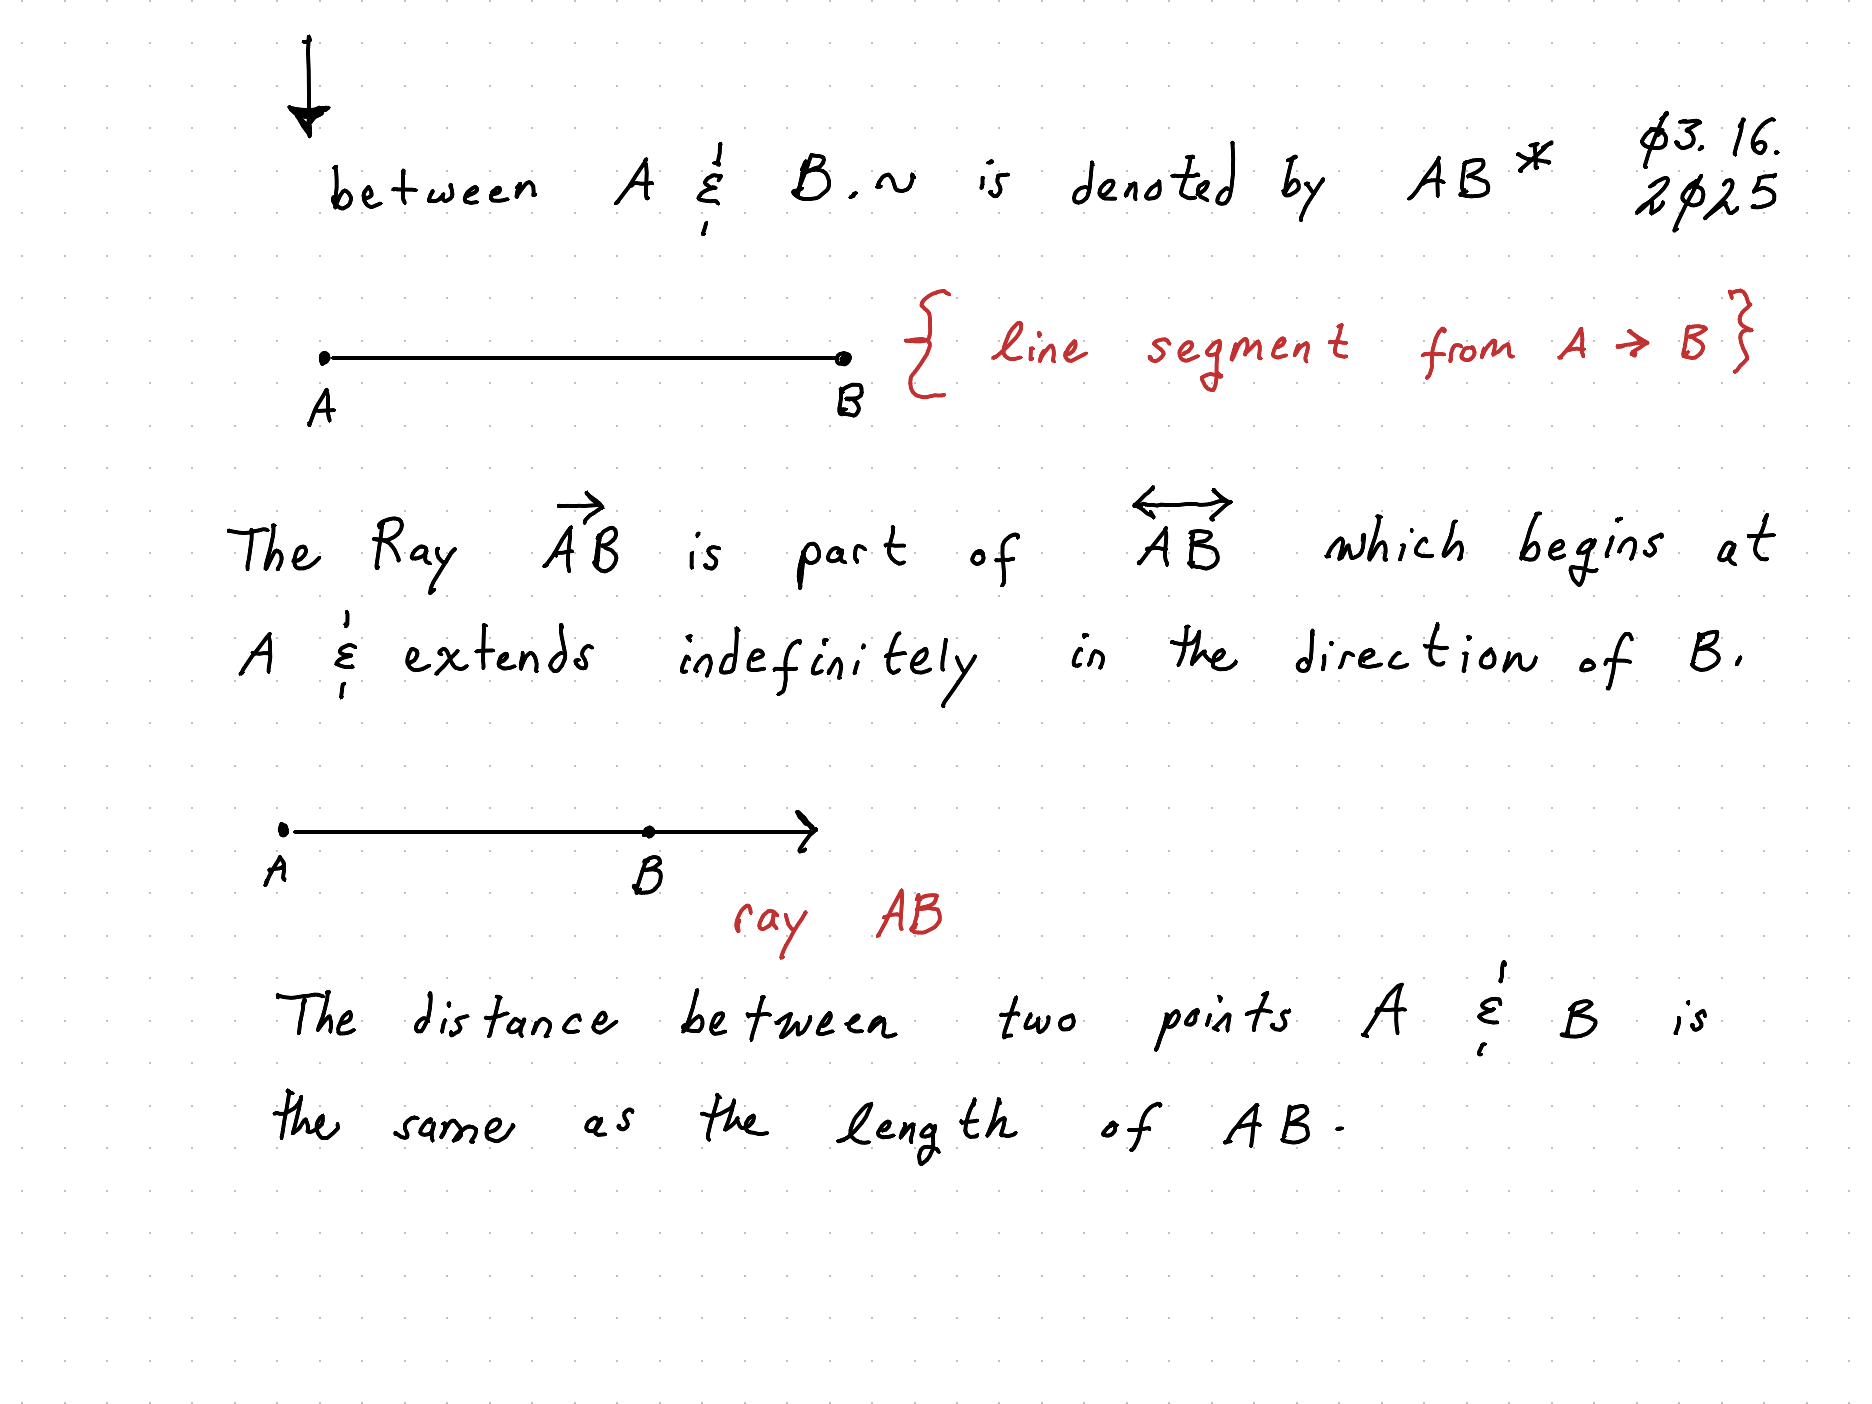 between A & B. ~ is denoted by AB* ø3. 16.
2ø25
A B { line segment from A → B }
The Ray A⃗B is part of A⃡B which begins at
A & extends indefinitely in the direction of B.
A B
ray AB
The distance between two points A & B is
the same as the length of AB.